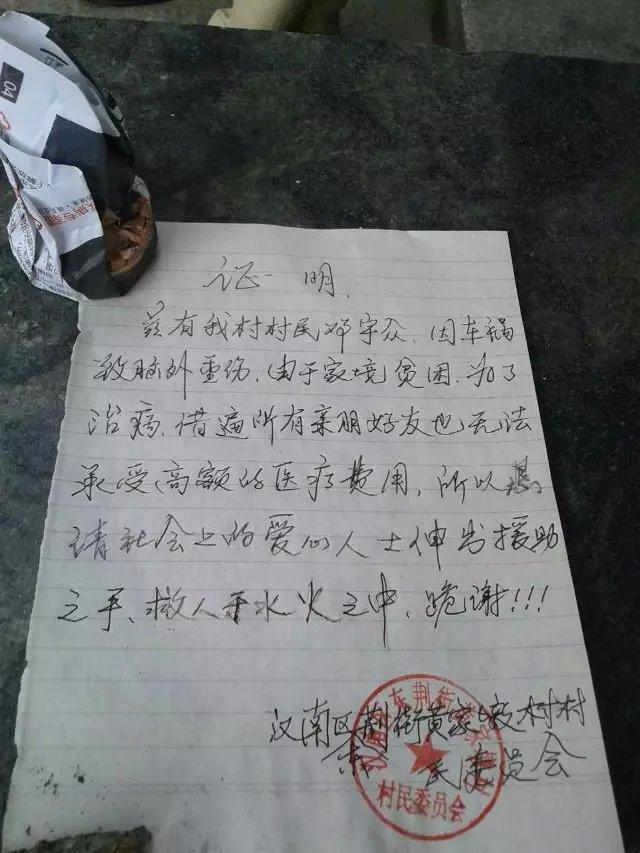 04
证明.
兹有我村村民邓宇众、因车祸
致脑外重伤、由于家境贫困、为了
治病、借遍所有亲朋好友也无法
承受高额的医疗费用、所以恳
请社会上的爱心人士伸出援助
之手、救人于水火之中、跪谢!!!
汉南区荆街黄家墩村村
东
民委员会
村民委员会